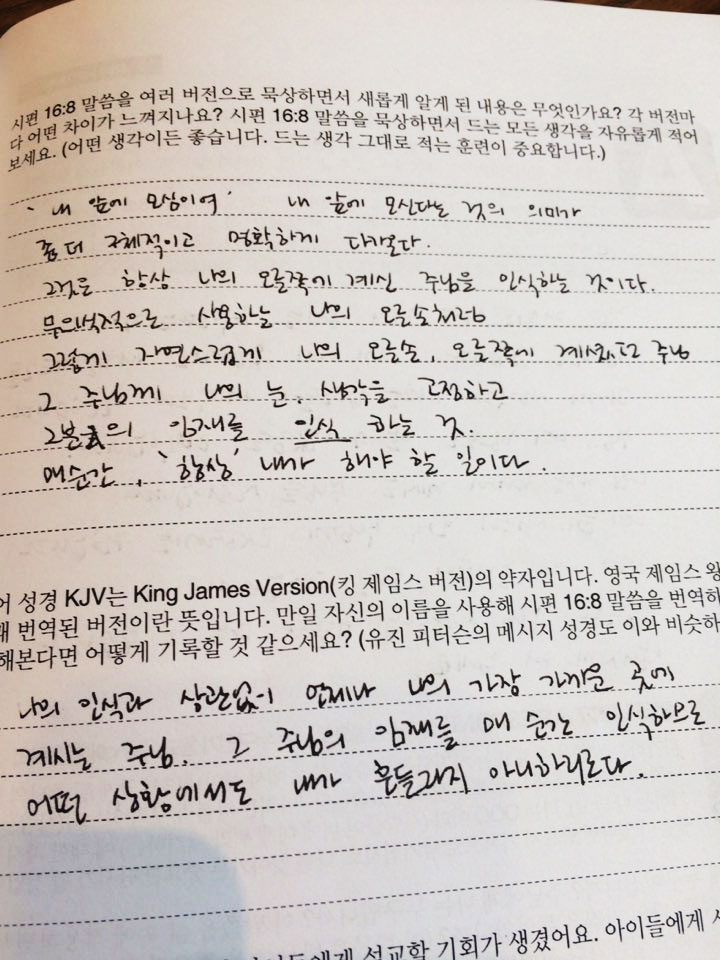 시편 16:8 말씀을 여러 버전으로 묵상하면서 새롭게 알게 된 내용은 무엇인가요? 각 버전마
다 어떤 차이가 느껴지나요? 시편 16:8 말씀을 묵상하면서 드는 모든 생각을 자유롭게 적어
보세요. (어떤 생각이든 좋습니다. 드는 생각 그대로 적는 훈련이 중요합니다.)
' 내 앞에 모심이여 ' 내 앞에 모신다는 것의 의미가
좀 더 구체적이고 명확하게 다가온다.
그것은 항상 나의 오른쪽에 계신 주님을 인식하는 것이다.
무의식적으로 사용하는 나의 오른손처럼
그렇게 자연스럽게 나의 오른손, 오른쪽에 계신 주님
그 주님께 나의 눈, 생각을 고정하고
그분의 임재를 인식 하는 것.
매순간, '항상' 내가 해야 할 일이다.
어 성경 KJV는 King James Version(킹 제임스 버전)의 약자입니다. 영국 제임스 왕
때 번역된 버전이란 뜻입니다. 만일 자신의 이름을 사용해 시편 16:8 말씀을 번역하
해본다면 어떻게 기록할 것 같으세요? (유진 피터슨의 메시지 성경도 이와 비슷하
나의 인식과 상관없이 언제나 나의 가장 가까운 곳에
계시는 주님. 그 주님의 임재를 매 순간 인식하므로
어떤 상황에서도 내가 흔들리지 아니하리로다.
에게 설교할 기회가 생겼어요. 아이들에게